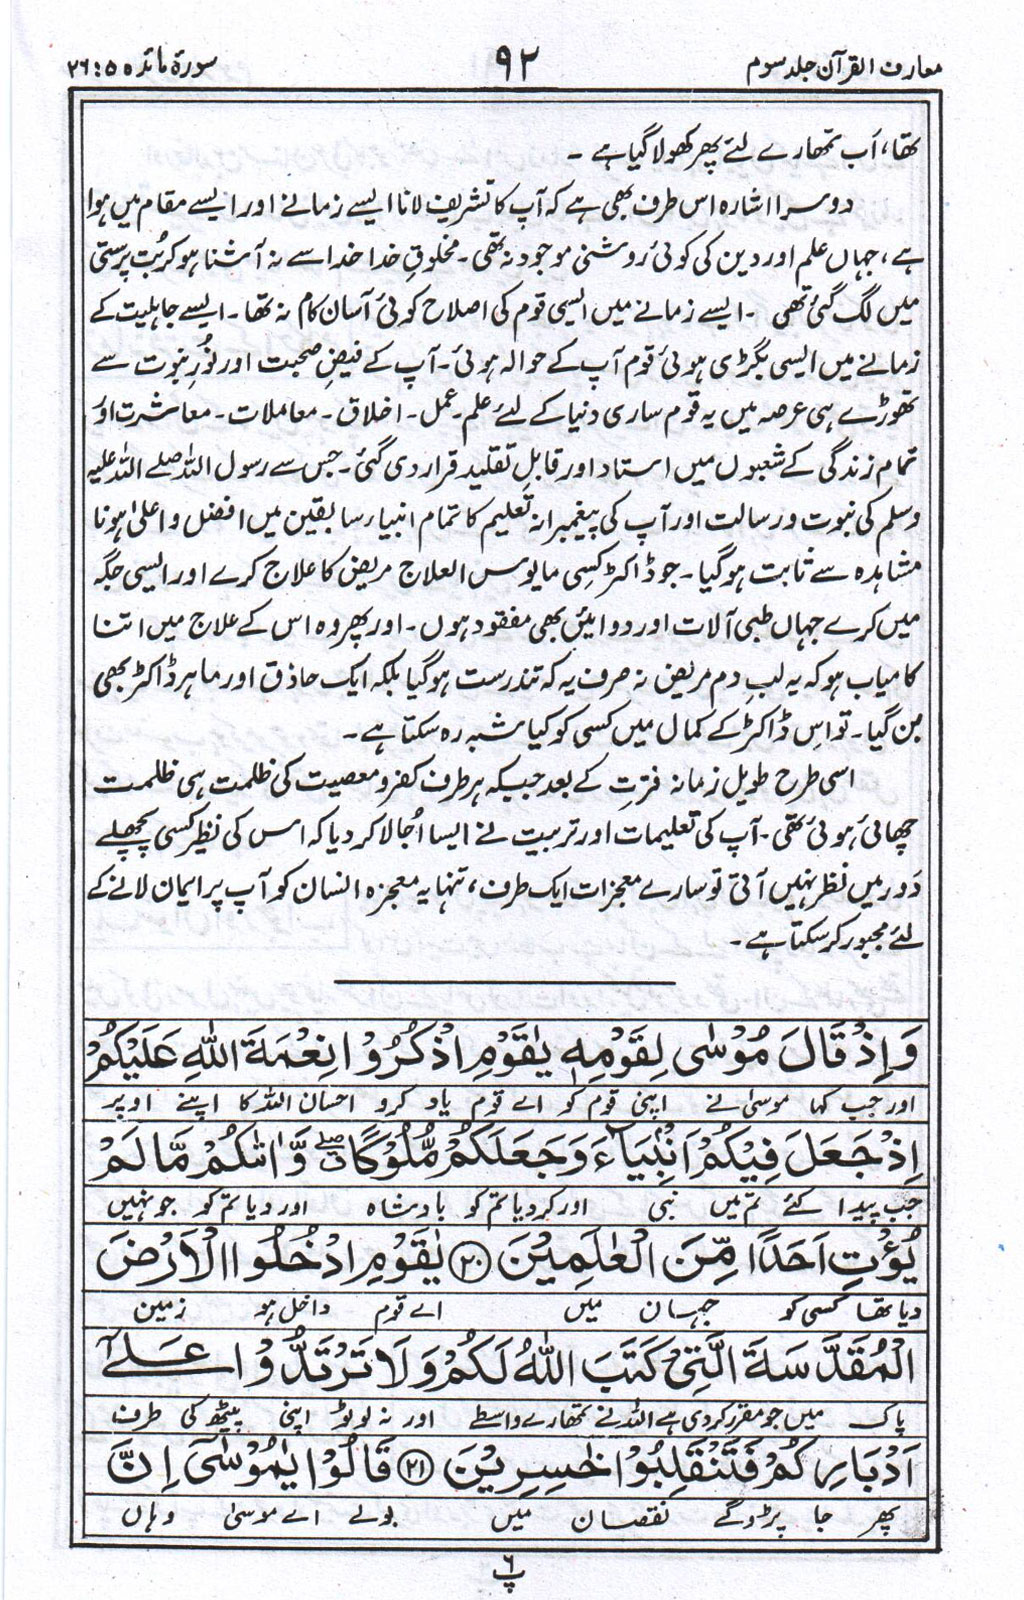 معارف القرآن جلد سوم
۹۲
سورۃ مائدہ ۵ : ۲۶
تھا، اَب تمھارے لئے پھر کھولا گیا ہے ۔
دوسرا اشارہ اس طرف بھی ہے کہ آپ کا تشریف لانا ایسے زمانے اور ایسے مقام میں ہوا
ہے، جہاں علم اور دین کی کوئی روشنی موجود نہ تھی ۔ مخلوقِ خدا خدا سے نہ آشنا ہو کر بُت پرستی
میں لگ گئی تھی ۔ ایسے زمانے میں ایسی قوم کی اصلاح کوئی آسان کام نہ تھا ۔ ایسے جاہلیت کے
زمانے میں ایسی بگڑی ہوئی قوم آپ کے حوالہ ہوئی ۔ آپ کے فیضِ صحبت اور نُورِ نبوت سے
تھوڑے ہی عرصہ میں یہ قوم ساری دنیا کے لئے علم ۔ عمل ۔ اخلاق ۔ معاملات ۔ معاشرت اور
تمام زندگی کے شعبوں میں استاد اور قابلِ تقلید قرار دی گئی ۔ جس سے رسول اللہ صلے اللہ علیہ
وسلم کی نبوت و رسالت اور آپ کی پیغمبرانہ تعلیم کا تمام انبیاء سابقین میں افضل و اعلیٰ ہونا
مشاہدہ سے ثابت ہو گیا ۔ جو ڈاکٹر کسی مایوس العلاج مریض کا علاج کرے اور ایسی جگہ
میں کرے جہاں طبی آلات اور دوائیں بھی مفقود ہوں ۔ اور پھر وہ اس کے علاج میں اتنا
کامیاب ہو کہ یہ لبِ دم مریض نہ صرف یہ کہ تندرست ہو گیا بلکہ ایک حاذق اور ماہر ڈاکٹر بھی
بن گیا ۔ تو اس ڈاکٹر کے کمال میں کسی کو کیا شبہ رہ سکتا ہے ۔
اسی طرح طویل زمانہ فترت کے بعد جبکہ ہر طرف کفر و معصیت کی ظلمت ہی ظلمت
چھائی ہوئی تھی ۔ آپ کی تعلیمات اور تربیت نے ایسا اُجالا کر دیا کہ اس کی نظیر کسی پچھلے
دَور میں نظر نہیں آتی تو سارے معجزات ایک طرف، تنہا یہ معجزہ انسان کو آپ پر ایمان لانے کے
لئے مجبور کر سکتا ہے ۔
وَاِذْ قَالَ مُوْسٰی لِقَوْمِهٖ یٰقَوْمِ اذْکُرُوْا نِعْمَةَ اللّٰهِ عَلَیْکُمْ
اور جب کہا موسیٰ نے اپنی قوم کو اے قوم یاد کرو احسان اللہ کا اپنے اوپر
اِذْ جَعَلَ فِیْکُمْ اَنْۢبِیَآءَ وَجَعَلَکُمْ مُّلُوْکًا ۖ وَّاٰتٰکُمْ مَّا لَمْ
جب پیدا کئے تم میں نبی اور کر دیا تم کو بادشاہ اور دیا تم کو جو نہیں
یُؤْتِ اَحَدًا مِّنَ الْعٰلَمِیْنَ ﴿۲۰﴾ یٰقَوْمِ ادْخُلُوا الْاَرْضَ
دیا تھا کسی کو جہان میں اے قوم داخل ہو زمین
الْمُقَدَّسَةَ الَّتِیْ کَتَبَ اللّٰهُ لَکُمْ وَلَا تَرْتَدُّوْا عَلٰٓی
پاک میں جو مقرر کر دی ہے اللہ نے تمھارے واسطے اور نہ لوٹو اپنی پیٹھ کی طرف
اَدْبَارِکُمْ فَتَنْقَلِبُوْا خٰسِرِیْنَ ﴿۲۱﴾ قَالُوْا یٰمُوْسٰٓی اِنَّ
پھر جا پڑو گے نقصان میں بولے اے موسیٰ وہاں
پ ۶